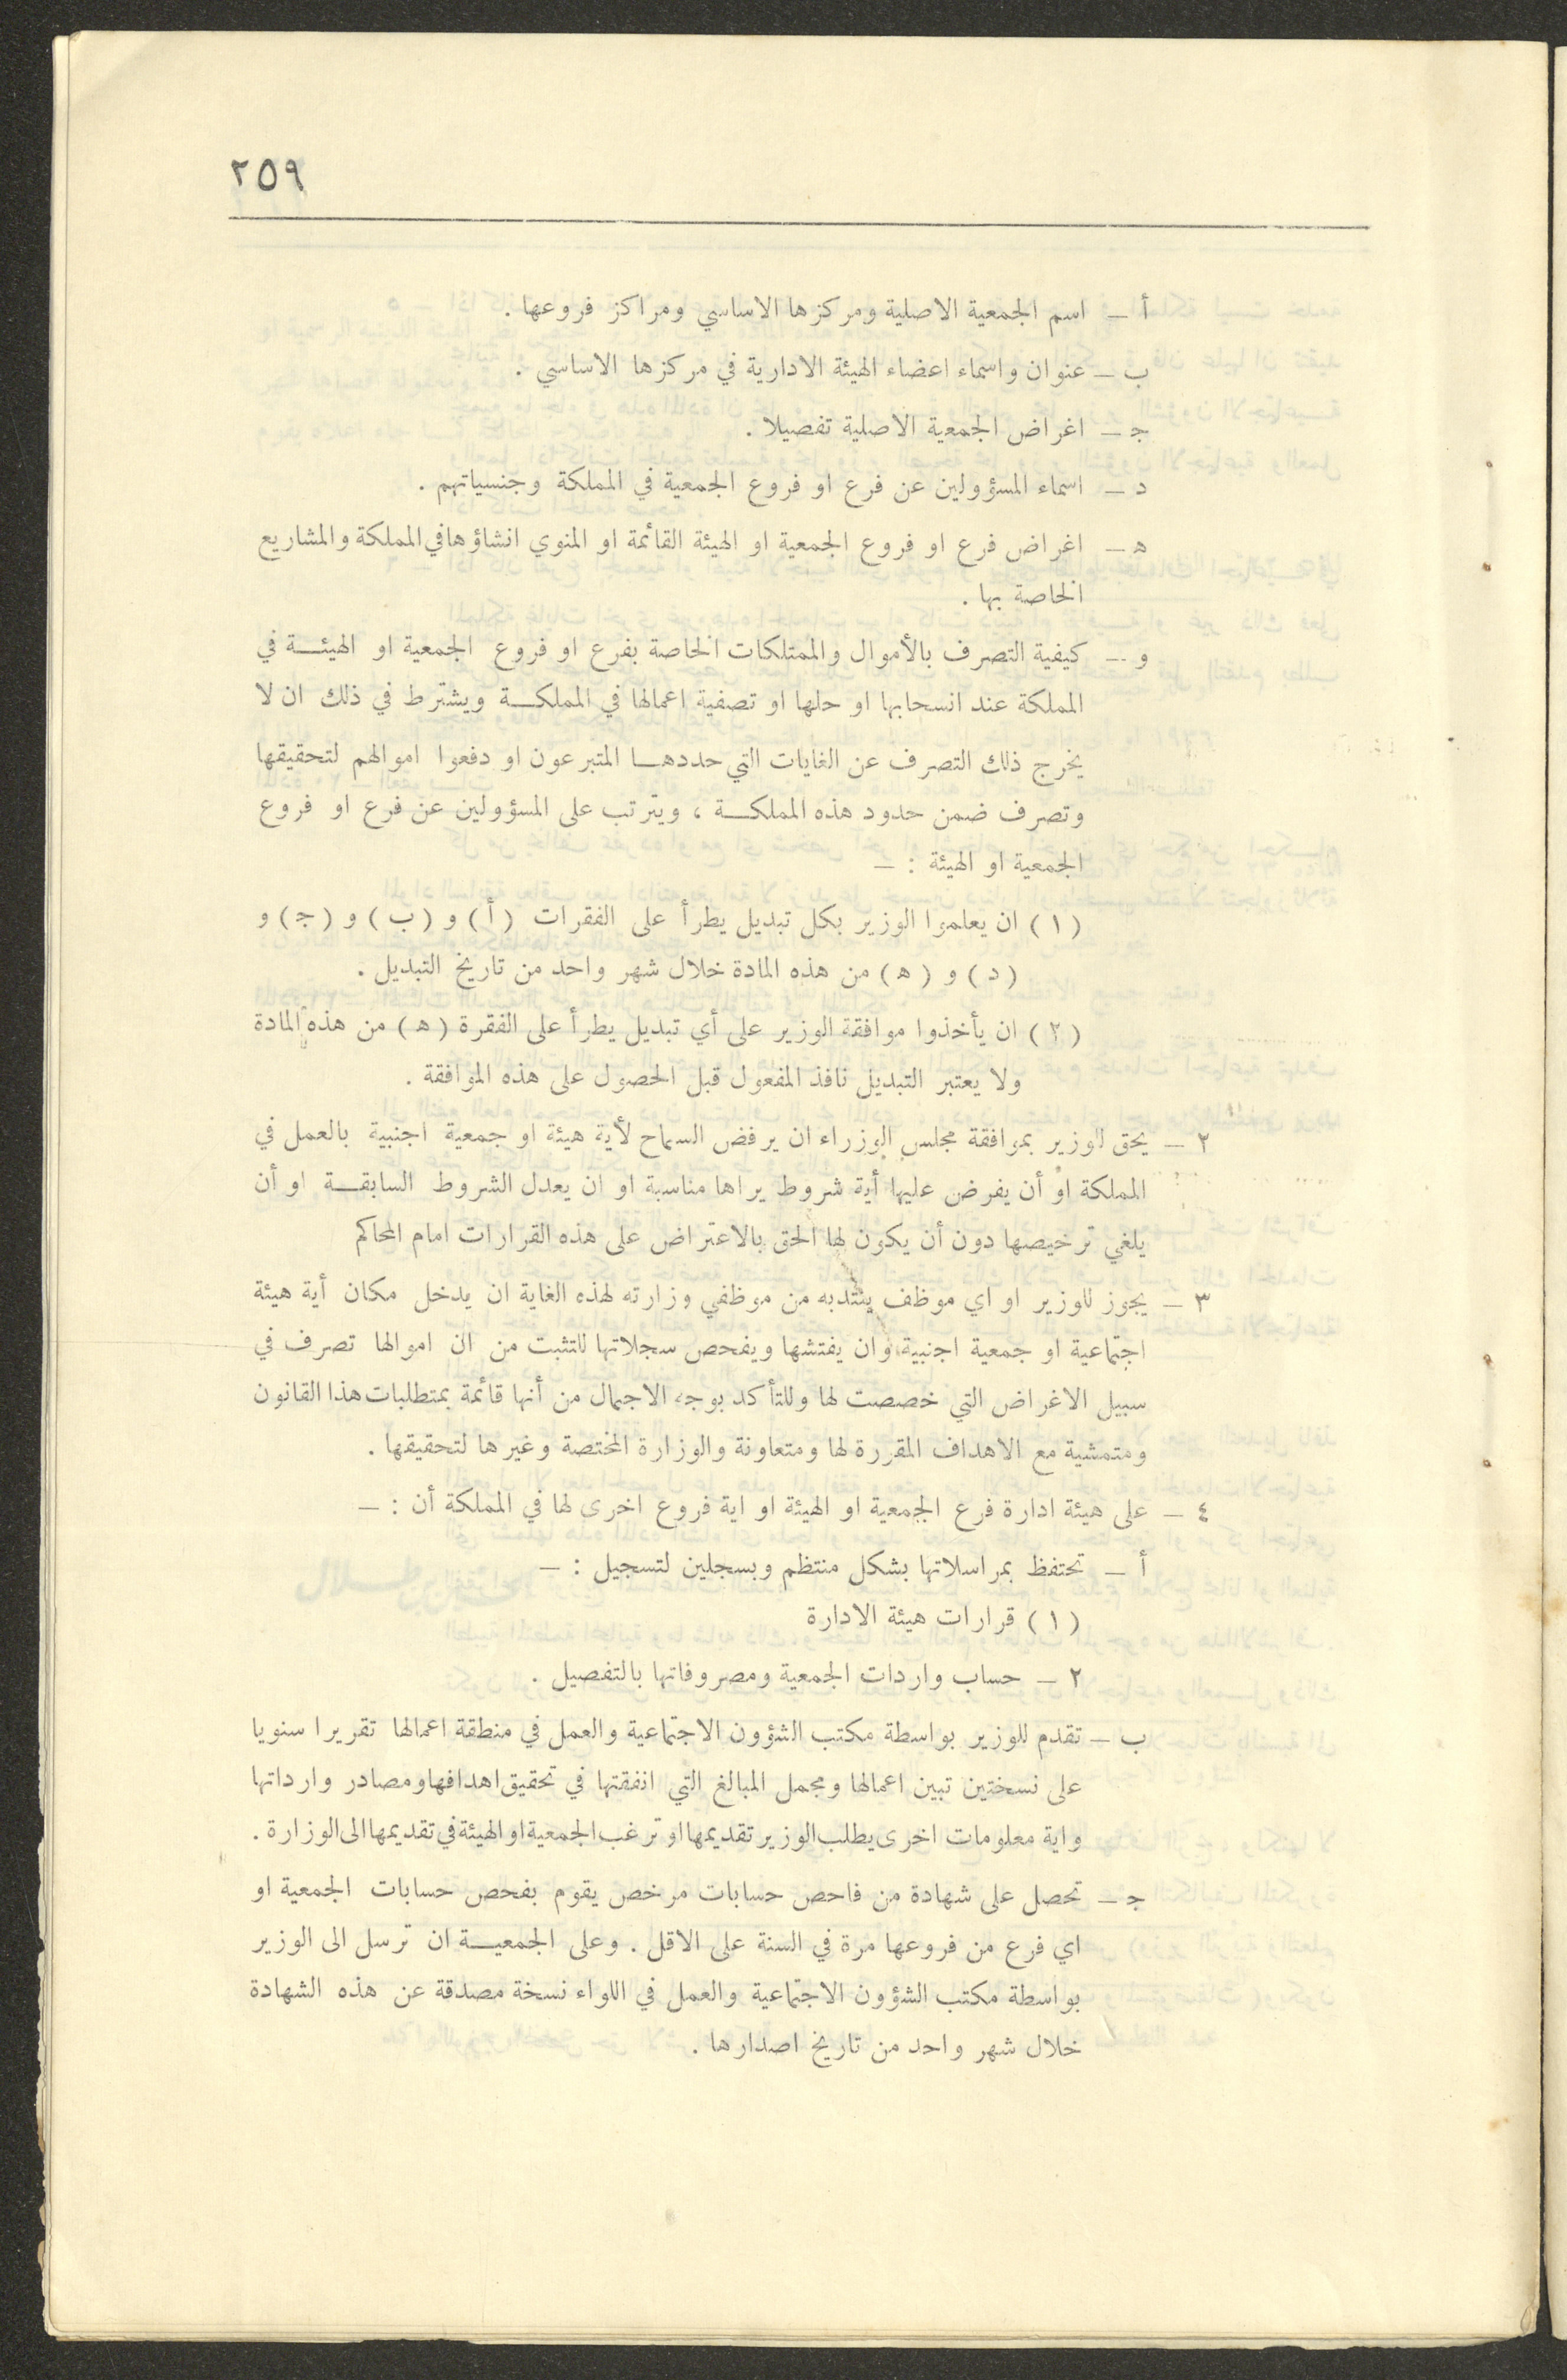 ٢٥٩
أ ـ اسم الجمعية الاصلية ومركزها الاساسي ومراكز فروعها .
ب ـ عنوان واسماء اعضاء الهيئة الادارية في مركزها الاساسي .
جـ ـ اغراض الجمعية الاصلية تفصيلا .
د ـ اسماء المسؤولين عن فرع او فروع الجمعية في المملكة وجنسياتهم .
هـ ـ اغراض فرع او فروع الجمعية او الهيئة القائمة او المنوي انشاؤها في المملكة والمشاريع
الخاصة بها .
و ـ كيفية التصرف بالأموال والممتلكات الخاصة بفرع او فروع الجمعية او الهيئــة في
المملكة عند انسحابها او حلها او تصفية اعمالها في المملكــة ويشترط في ذلك ان لا
يخرج ذلك التصرف عن الغايات التي حددهــا المتبرعون او دفعوا اموالهم لتحقيقها
وتصرف ضمن حدود هذه المملكــة ، ويترتب على المسؤولين عن فرع او فروع
الجمعية او الهيئة : ـ
( ١ ) ان يعلموا الوزير بكل تبديل يطرأ على الفقرات ( أ ) و ( ب ) و ( جـ ) و
( د ) و ( هـ ) من هذه المادة خلال شهر واحد من تاريخ التبديل .
( ٢ ) ان يأخذوا موافقة الوزير على أي تبديل يطرأ على الفقرة ( هـ ) من هذه المادة
ولا يعتبر التبديل نافذ المفعول قبل الحصول على هذه الموافقة .
٢ ـ يحق للوزير بموافقة مجلس الوزراء ان يرفض السماح لأية هيئة او جمعية اجنبية بالعمل في
المملكة او أن يفرض عليها أية شروط يراها مناسبة او ان يعدل الشروط السابقــة او أن
يلغي ترخيصها دون أن يكون لها الحق بالاعتراض على هذه القرارات امام المحاكم
٣ ـ يجوز للوزير او اي موظف ينتدبه من موظفي وزارته لهذه الغاية ان يدخل مكان أية هيئة
اجتماعية او جمعية اجنبية وان يفتشها ويفحص سجلاتها للتثبت من ان اموالها تصرف في
سبيل الاغراض التي خصصت لها وللتأكد بوجه الاجمال من أنها قائمة بمتطلبات هذا القانون
ومتمشية مع الاهداف المقررة لها ومتعاونة والوزارة المختصة وغيرها لتحقيقها .
٤ ـ على هيئة ادارة فرع الجمعية او الهيئة او اية فروع اخرى لها في المملكة أن : ـ
أ ـ تحتفظ بمراسلاتها بشكل منتظم وبسجلين لتسجيل : ـ
( ١ ) قرارات هيئة الادارة
٢ ـ حساب واردات الجمعية ومصروفاتها بالتفصيل .
ب ـ تقدم للوزير بواسطة مكتب الشؤون الاجتماعية والعمل في منطقة اعمالها تقريرا سنويا
على نسختين تبين اعمالها ومجمل المبالغ التي انفقتها في تحقيق اهدافها ومصادر وارداتها
واية معلومات اخرى يطلب الوزير تقديمها او ترغب الجمعية او الهيئة في تقديمها الى الوزارة .
جـ ـ تحصل على شهادة من فاحص حسابات مرخص يقوم بفحص حسابات الجمعية او
اي فرع من فروعها مرة في السنة على الاقل . وعلى الجمعيــة ان ترسل الى الوزير
بواسطة مكتب الشؤون الاجتماعية والعمل في اللواء نسخة مصدقة عن هذه الشهادة
خلال شهر واحد من تاريخ اصدارها .